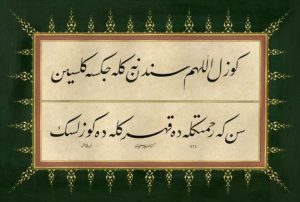 كوزل اللهم سندن نه كله جكسه كلسين
سن كه رحمتكله ده قهركله ده كوزلسك